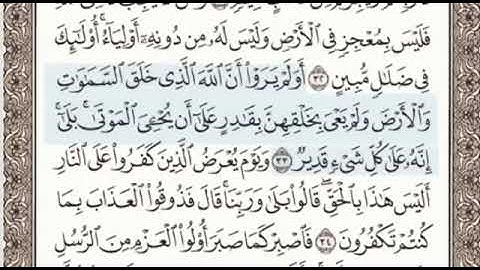 فَلَيْسَ بِمُعْجِزٍ فِي ٱلْأَرْضِ وَلَيْسَ لَهُۥ مِن دُونِهِۦٓ أَوْلِيَآءُ ۚ أُو۟لَـٰٓئِكَ
فِي ضَلَـٰلٍ مُّبِينٍ ٣٢ أَوَلَمْ يَرَوْا۟ أَنَّ ٱللَّهَ ٱلَّذِي خَلَقَ ٱلسَّمَـٰوَٰتِ
وَٱلْأَرْضَ وَلَمْ يَعْيَ بِخَلْقِهِنَّ بِقَـٰدِرٍ عَلَىٰٓ أَن يُحْـِۧيَ ٱلْمَوْتَىٰ ۚ بَلَىٰٓ
إِنَّهُۥ عَلَىٰ كُلِّ شَيْءٍ قَدِيرٌ ٣٣ وَيَوْمَ يُعْرَضُ ٱلَّذِينَ كَفَرُوا۟ عَلَى ٱلنَّارِ
أَلَيْسَ هَـٰذَا بِٱلْحَقِّ ۖ قَالُوا۟ بَلَىٰ وَرَبِّنَا ۚ قَالَ فَذُوقُوا۟ ٱلْعَذَابَ بِمَا
كُنتُمْ تَكْفُرُونَ ٣٤ فَٱصْبِرْ كَمَا صَبَرَ أُو۟لُوا۟ ٱلْعَزْمِ مِنَ ٱلرُّسُلِ